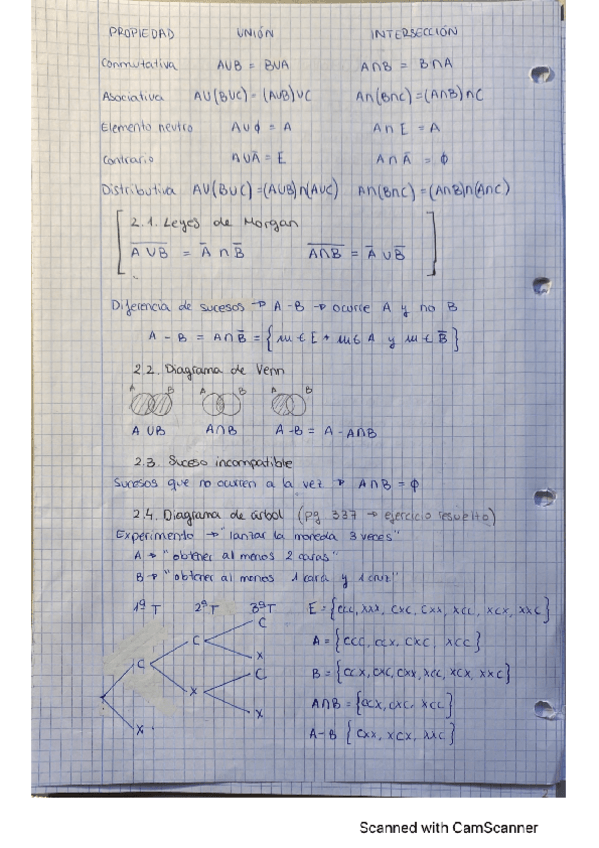 PROPIEDAD UNIÓN INTERSECCIÓN
Conmutativa A∪B = B∪A A∩B = B∩A
Asociativa A∪(B∪C) = (A∪B)∪C A∩(B∩C) = (A∩B)∩C
Elemento neutro A∪ϕ = A A∩E = A
Contrario A∪Ā = E A∩Ā = ϕ
Distributiva A∪(B∪C) = (A∪B)∩(A∪C) A∩(B∩C) = (A∩B)∩(A∩C)
2.1. Leyes de Morgan
\overline{A∪B} = Ā∩B̄ \overline{A∩B} = Ā∪B̄
Diferencia de sucesos → A-B → ocurre A y no B
A - B = A∩B̄ = { E A y B̄ }
2.2. Diagrama de Venn
A B A B A B
A∪B A∩B A-B = A - A∩B
2.3. Suceso incompatible
Sucesos que no ocurren a la vez → A∩B = ϕ
2.4. Diagrama de árbol (pg 337 → ejercicio resuelto)
Experimento → "lanzar la moneda 3 veces"
A → "obtener al menos 2 caras"
B → "obtener al menos 1 cara y 1 cruz"
1ª T 2ª T 3ª T E = {CCC, XXX, CXC, CXX, XCC, XCX, XXC}
C
C A = {CCC, CCX, CXC, XCC}
X
C C B = {CCX, CXC, CXX, XCC, XCX, XXC}
X
X A∩B = {CCX, CXC, XCC}
X A-B {CXX, XCX, XXC}
Scanned with CamScanner